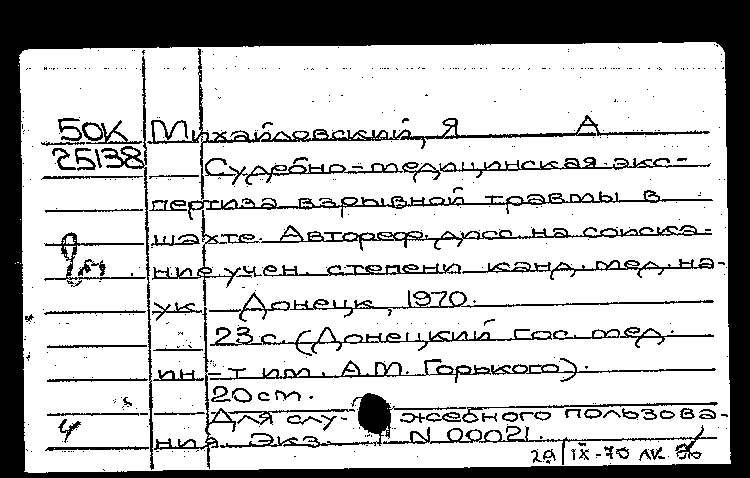 50К Михайловский, Я А
25138 Судебно-медицинская экс-
пертиза взрывной травмы в
шахте. Автореф. дисс. на соиска-
ние учен. степени канд. мед. на-
ук. Донецк, 1970.
23 с. (Донецкий гос. мед.
ин-т им. А.М. Горького).
20 cm.
Для слу- жебного пользова-
ния. Экз. N 00021.
29/IX-70